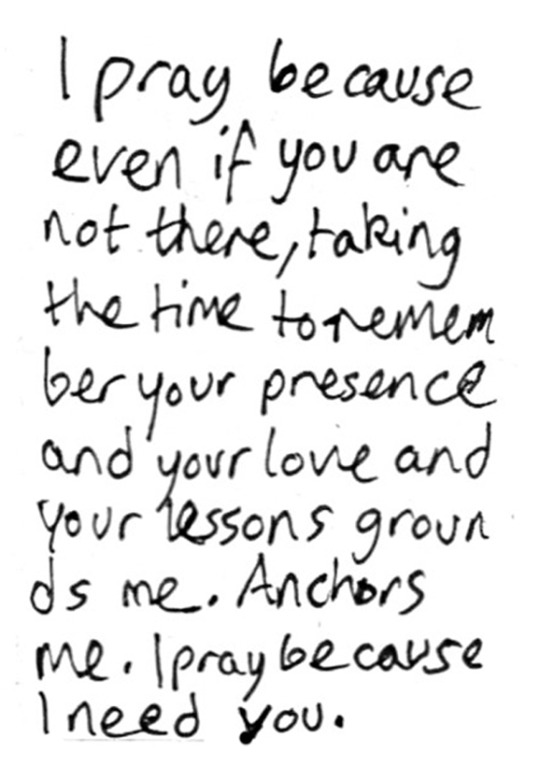 I pray because
even if you are
not there, taking
the time to remem
ber your presence
and your love and
your lessons groun
ds me. Anchors
me. I pray because
I need you.